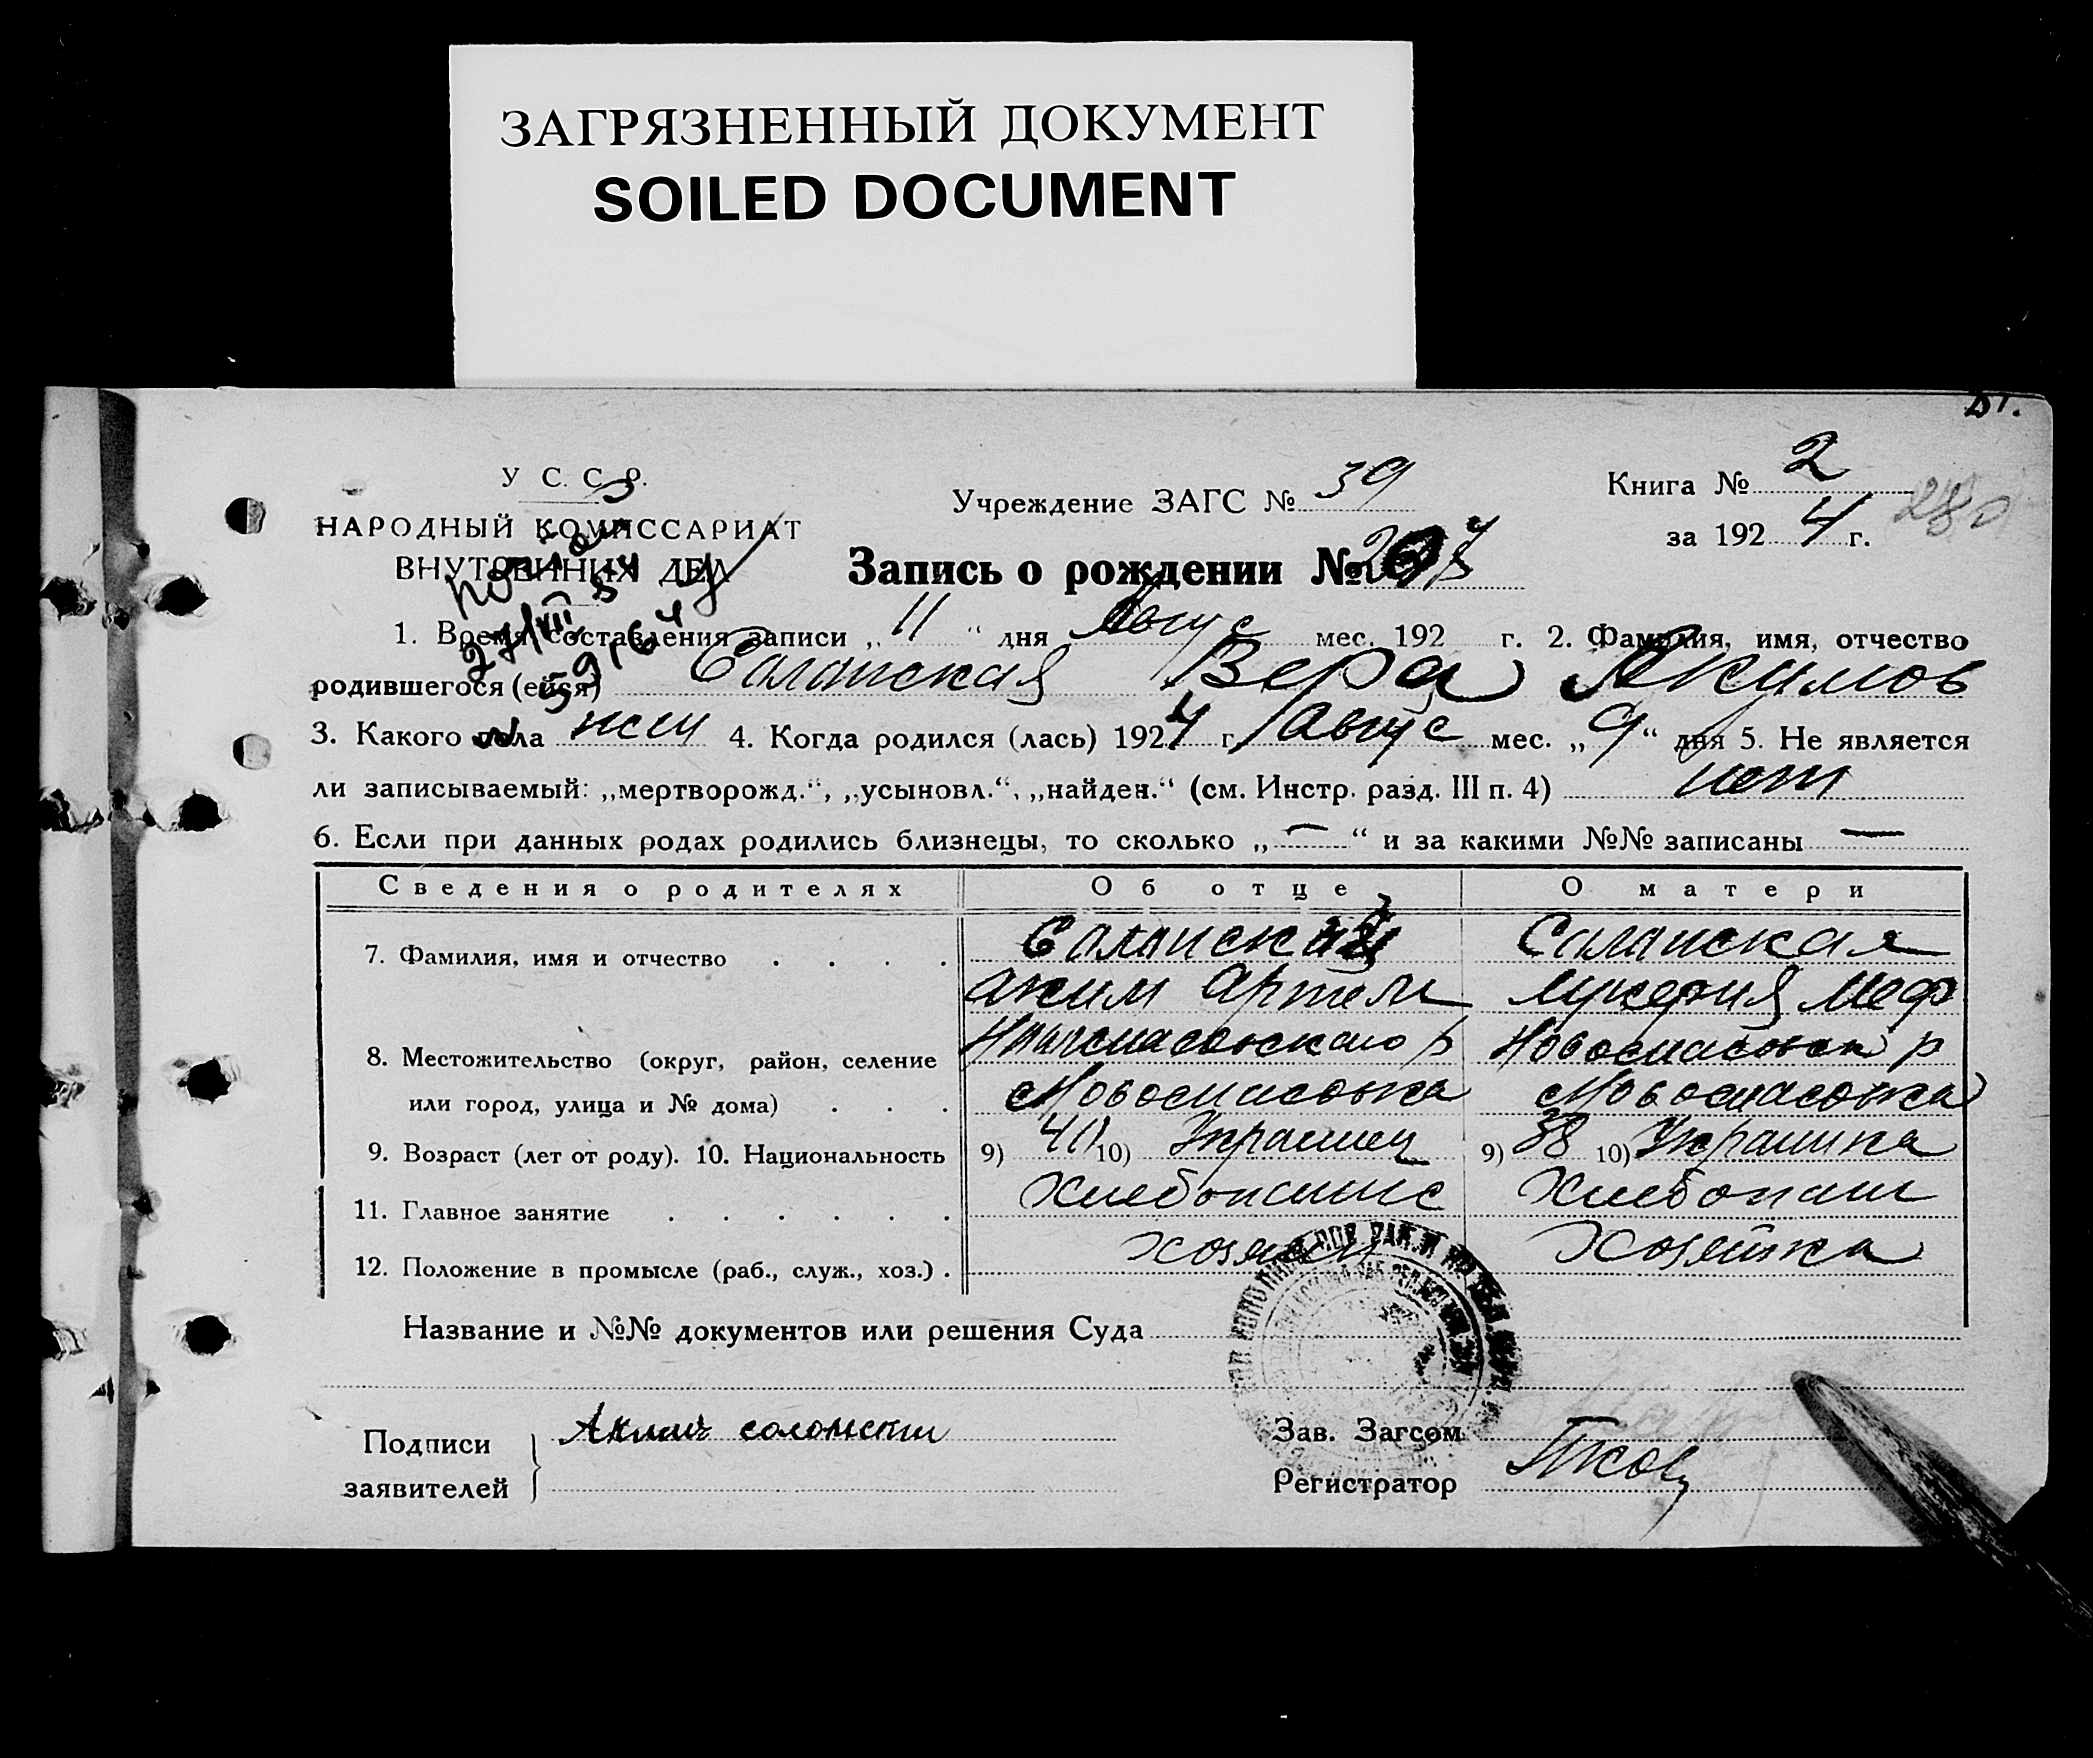 ЗАГРЯЗНЕННЫЙ ДОКУМЕНТ
SOILED DOCUMENT
У С. С. Р.
НАРОДНЫЙ КОМИССАРИАТ
ВНУТРЕННИХ ДЕЛ
Учреждение ЗАГС № 39
Книга № 2
за 1924 г.
280
Запись о рождении №
1. Время составления записи „11“ дня Авгус мес. 192 г. 2. Фамилия, имя, отчество
родившегося (ейся) Вера Акимов
3. Какого пола жен 4. Когда родился (лась) 1924 г. Авгус мес. „9“ дня 5. Не является
ли записываемый: „мертворожд.“, „усыновл.“, „найден.“ (см. Инстр. разд. III п. 4) нет
6. Если при данных родах родились близнецы, то сколько „—“ и за какими №№ записаны —
Сведения о родителях Об отце О матери
7. Фамилия, имя и отчество
Аким Артем Лукерия Меф
8. Местожительство (округ, район, селение Новоспасовск р
или город, улица и № дома) Новоспасовка Новоспасовка
9. Возраст (лет от роду). 10. Национальность 9) 40 10) Украинец 9) 38 10) Украинка
11. Главное занятие Хлебопаше Хлебопаш
12. Положение в промысле (раб., служ., хоз.) хозяин Хозяйка
Название и №№ документов или решения Суда
Подписи
заявителей
Зав. Загсом
Регистратор